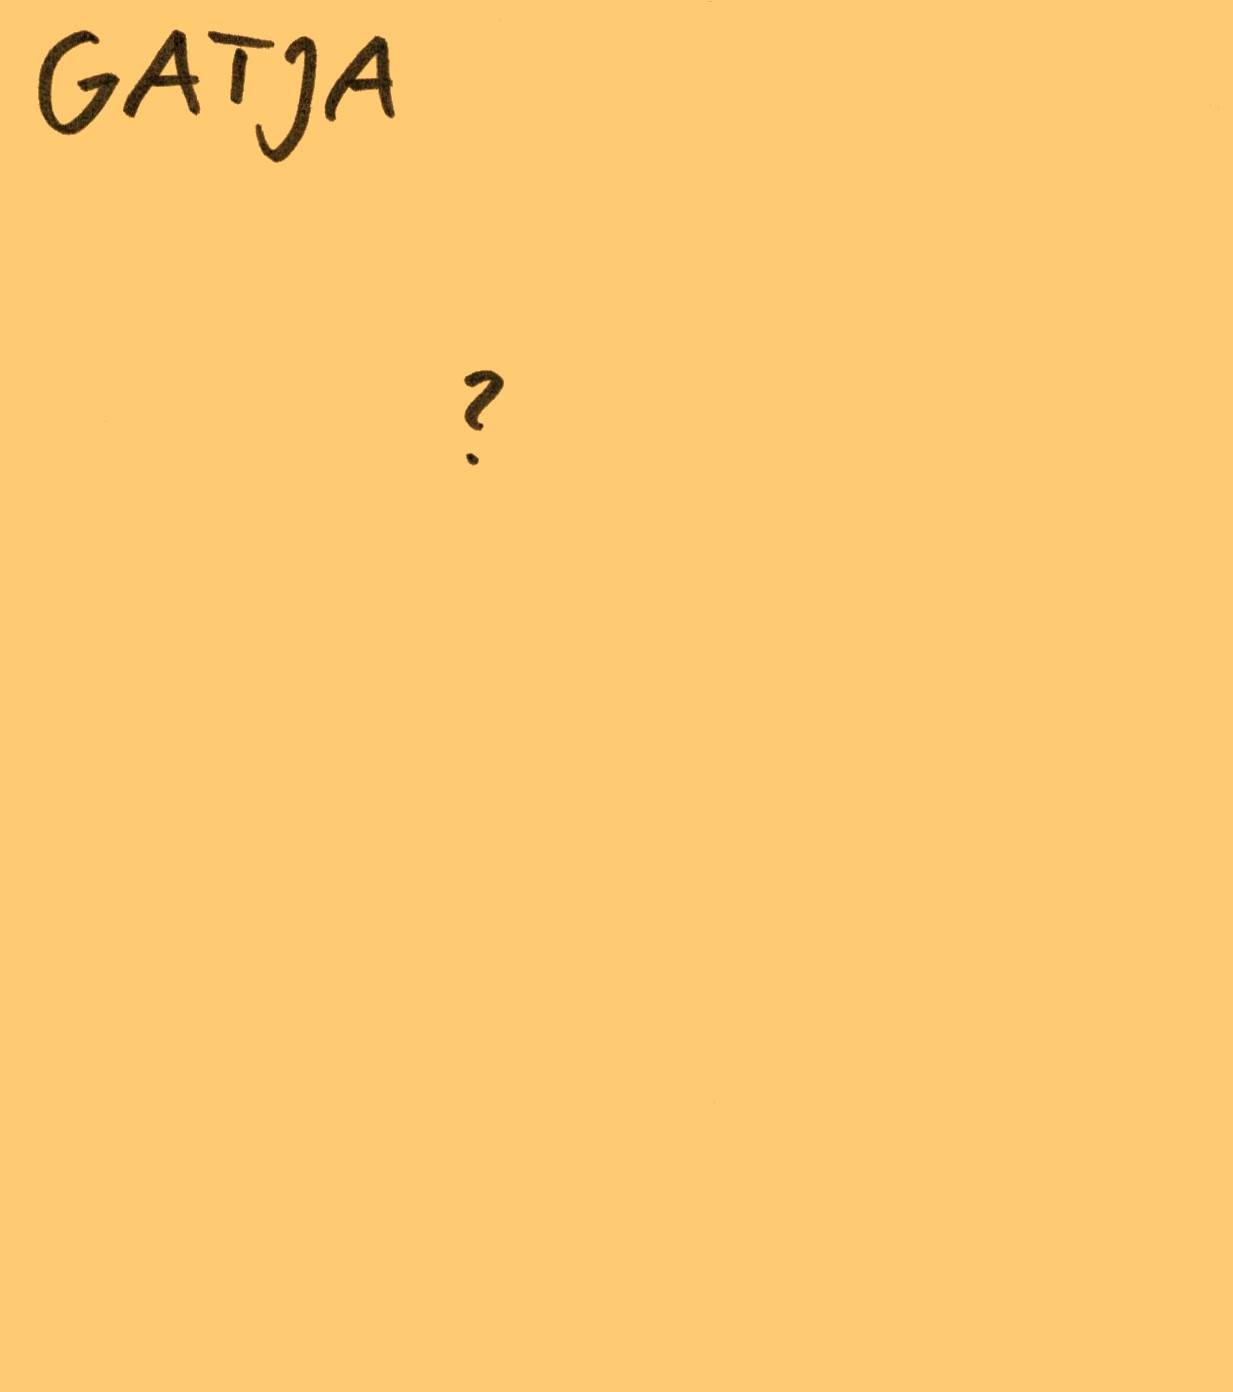 GATJA
?